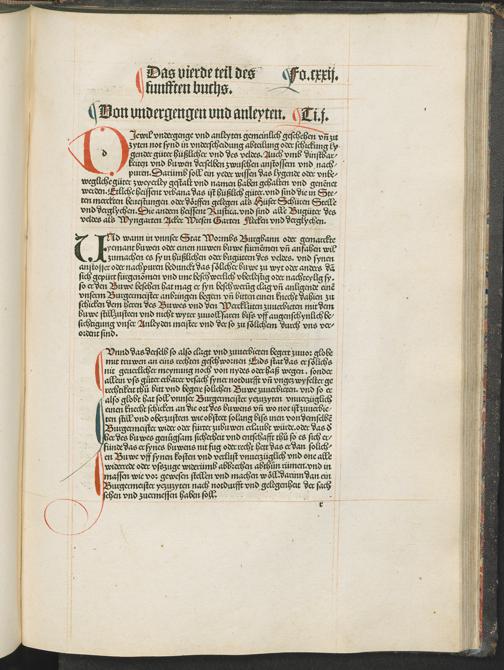 Das vierde teil des
Fo.cxxij.
funfften buchs.
Von vndergengen vnd anleyten.
Ti.j.
Diewil vndergenge vnd anleyten gemeinlich geschehen vñ zu
zyten not synd in vnderscheidung abteilung oder schickung ly
gender güter hüßlicher vnd des veldes. Auch vmb dinstbar
keiten vnd buwen derselben zwüschen anstossern vnd nach
puren. Darumb soll ein yeder wissen das lygende oder vnbe-
wegliche güter zweyerley gestalt vnd namen haben gehalten vnd genent
werden. Etliche heissent vrbana das ist hüßlich güter. vnd sind die in Ste
ten merckten beuestungen oder dörffen gelegen als Hüser Schüren Stelle
vnd derglychen. Die andern heissent Rustica. vnd sind alle Bugüter des
veldes als Wyngarten Äcker Wiesen Garten Flecken vnd derglychen.
Und wann in vnnser Stat Wormbs Burgbann oder gemarckte
yemant buwen oder einen nuwen buwe fürnemen vñ anfahen wil
zumachen es sy in hüßlichen oder bugütern des veldes. vnd synen
anstosser oder nachpuren beduncket das sölicher buwe zu wyt oder anders dañ
sich gepürt fürgenomen vnd ime beschwerlich vberlestig oder nachteylig sy.
so er den Buwe besehen hat mag er syn beschwerüg clag vñ anligende einē
vnserm Burgermeister anbringen begern vñ bitten einen knecht dahien zu
schicken dem herrn des Buwes vnd den Werckluten zuuerbieten mit dem
buwe stillzusteen vnd nicht wyter zuuollfarn biss vff augenschynlich be-
sichtigung vnser Anleyden meister vnd der so zu sölichem durch vns ver-
ordent sind.
Vnnd das derselb so also clagt vnd zuuerbieten begert zuuor globe
mit truwen an eins rechten geschwornen Eids stat das er söliche
nit geuerlicher meynung noch von nydes oder haß wegen. sonder
allein vß güter erbarer vrsach syner notdurfft vñ vngezwyfelter ge
rechtikeit thü bitt vnd beger solichen Buwe zuuerbieten. vnd so er
also globt hat soll vnnser Burgermeister yezuzyten vnuerzüglich
einen knecht schicken an die ort des buwens vñ wo not ist zuuerbie-
ten still vnd oberzusteen wie obstet solang biss inen von demselbē
Burgermeister wider oder fürter zubuwen erlaubt würde. oder das d
her des buwes genügsam sicherheit vnd entschafft thü so es sich er-
fünde das er synes buwens nit fug oder recht het das er dan solich-
en Buwe vff synen kosten vnd verlust vnuerzüglich vnd one alle
widerrede oder vßzuge widerumb abbrechen abthün rümen. vnd in
massen wie vor gewesen stellen vnd machen wöll. Darum dan ein
Burgermeister yezuzyten nach notdurfft vnd gelegenheit der sach
sehen vnd zuermessen haben soll.
r